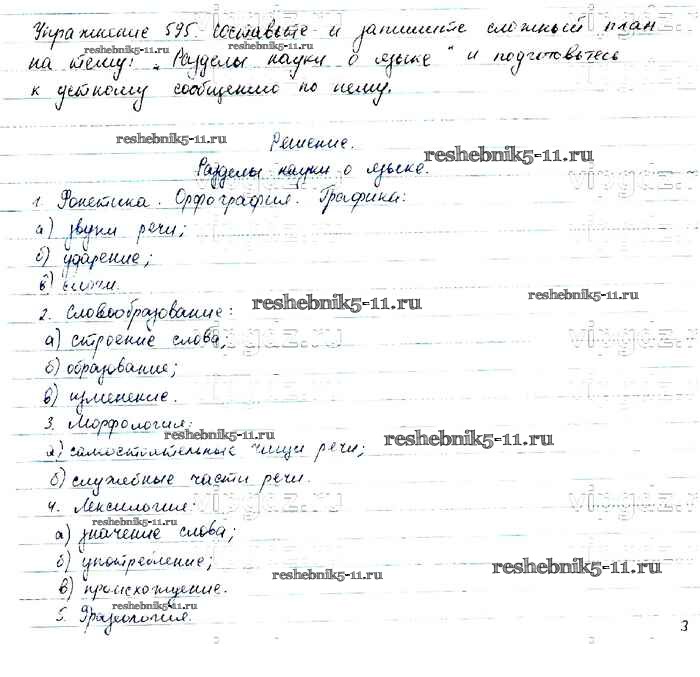 Упражнение 595. Составьте и запишите сложный план
на тему: „Разделы науки о языке" и подготовьтесь
к устному сообщению по нему.
Решение.
Разделы науки о языке.
1. Фонетика. Орфография. Графика:
а) звуки речи;
б) ударение;
в) слоги.
2. Словообразование:
а) строение слова;
б) образование;
в) изменение.
3. Морфология:
а) самостоятельных части речи;
б) служебные части речи.
4. Лексилогия:
а) значение слова;
б) употребление;
в) происхождение.
5. Фразеология.
3
reshebnik5-11.ru
reshebnik5-11.ru
reshebnik5-11.ru
reshebnik5-11.ru
reshebnik5-11.ru
reshebnik5-11.ru
reshebnik5-11.ru
reshebnik5-11.ru
reshebnik5-11.ru
reshebnik5-11.ru
reshebnik5-11.ru
reshebnik5-11.ru